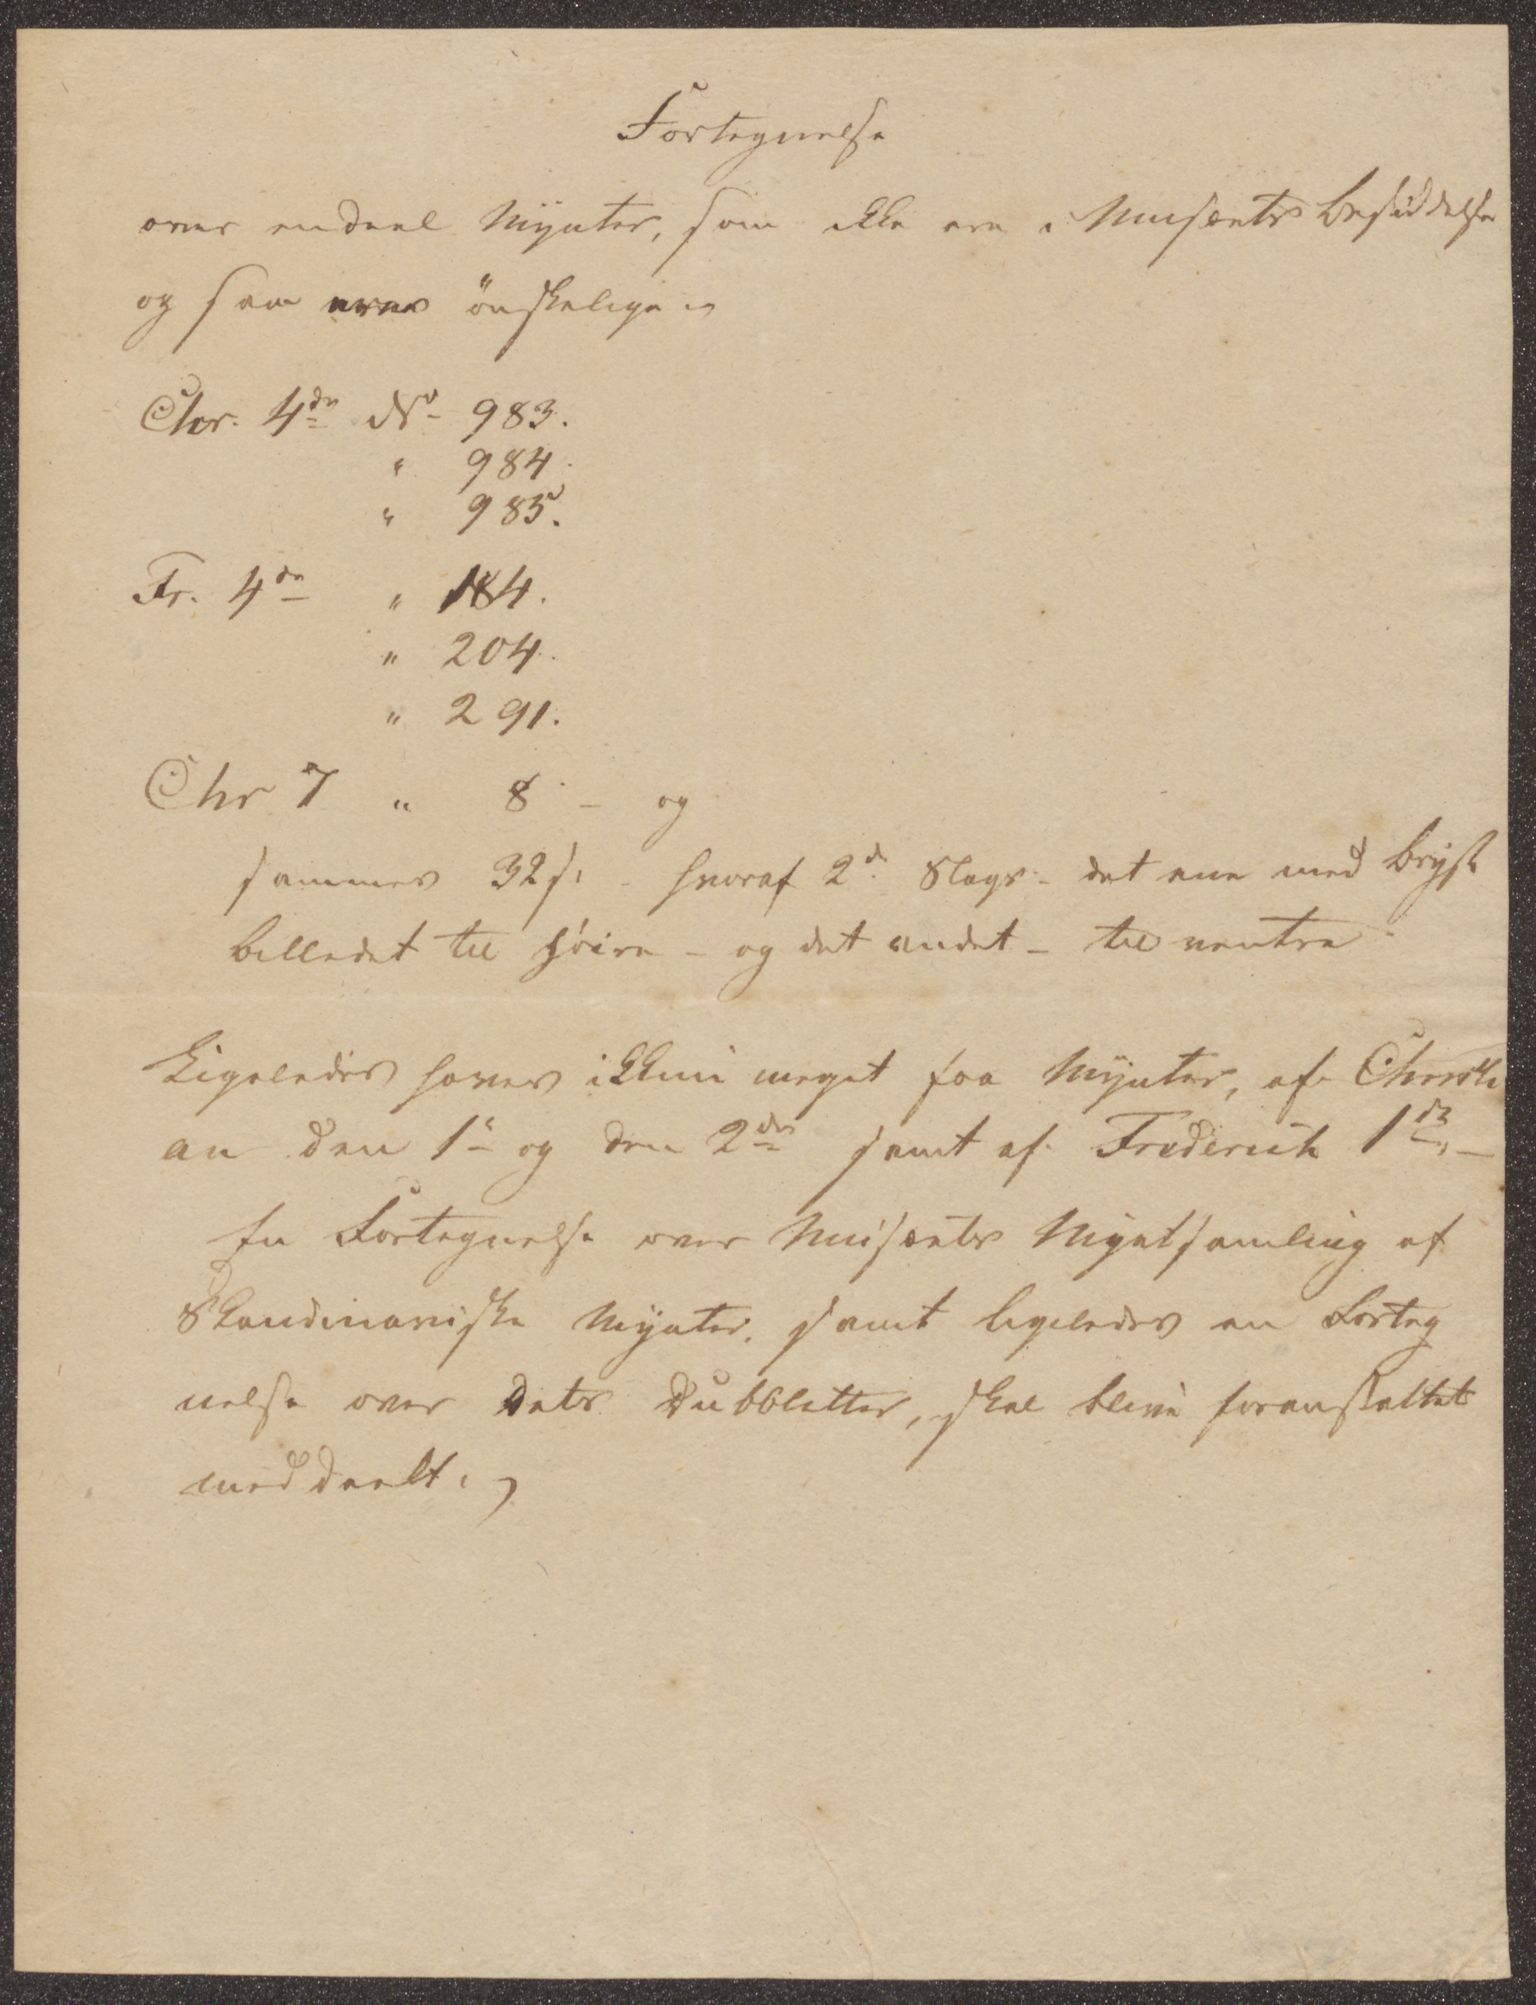 Fortegnelse
over endeel Mÿnter, som ikke ere i Museets Besiddelse
og som ønskelige
Chr. 4de No 983.
" 984.
" 985.
Fr. 4de " 184.
" 204.
" 291.
Chr 7 " 8 – og
sammes 32 s. – hvoraf 2de Slags – det ene med Brÿst
billedet til høire – og det andet – til ventre
Ligeledes haves ikkun meget faa Mÿnter, af Christi
an den 1e og den 2den samt af Frederich 1ste –
En Fortegnelse over Museets Mÿntsamling af
Skandinaviske Mÿnter. samt ligeledes en Forteg
nelse over dets Dubbletter, skal blive foranstaltet
meddeelt.